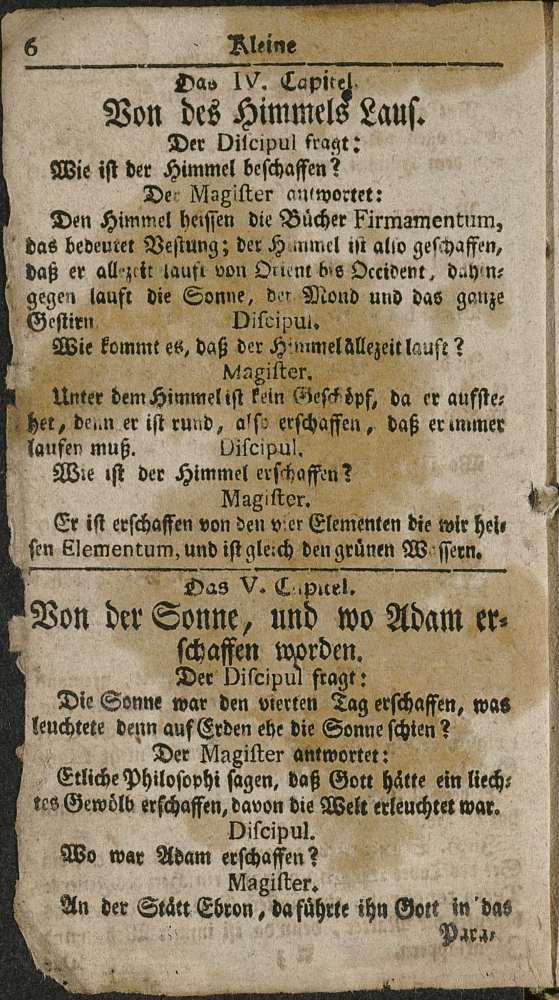 6 Kleine
Das IV. Capitel.
Von des Himmels Lauf.
Der Diſcipul fragt:
Wie iſt der Himmel beſchaffen?
Der Magiſter antwortet:
Den Himmel heiſſen die Bücher Firmamentum,
das bedeutet Veſtung; der Himmel iſt alſo geſchaffen,
daß er allezeit lauft von Orient bis Occident, dahin-
gegen lauft die Sonne, der Mond und das ganze
Geſtirn Diſcipul.
Wie kommt es, daß der Himmel allezeit lauft?
Magiſter.
Unter dem Himmel iſt kein Geſchöpf, da er aufſte-
het, denn er iſt rund, alſo erſchaffen, daß er immer
laufen muß. Diſcipul.
Wie iſt der Himmel erſchaffen?
Magiſter.
Er iſt erſchaffen von den vier Elementen die wir heiſ-
ſen Elementum, und iſt gleich den grünen Waſſern.
Das V. Capitel.
Von der Sonne, und wo Adam er-
ſchaffen worden.
Der Diſcipul fragt:
Die Sonne war den vierten Tag erſchaffen, was
leuchtete denn auf Erden ehe die Sonne ſchien?
Der Magiſter antwortet:
Etliche Philoſophi ſagen, daß Gott hätte ein liech-
tes Gewölb erſchaffen, davon die Welt erleuchtet war.
Diſcipul.
Wo war Adam erſchaffen?
Magiſter.
An der Stätt Ebron, da führte ihn Gott in das
Para-